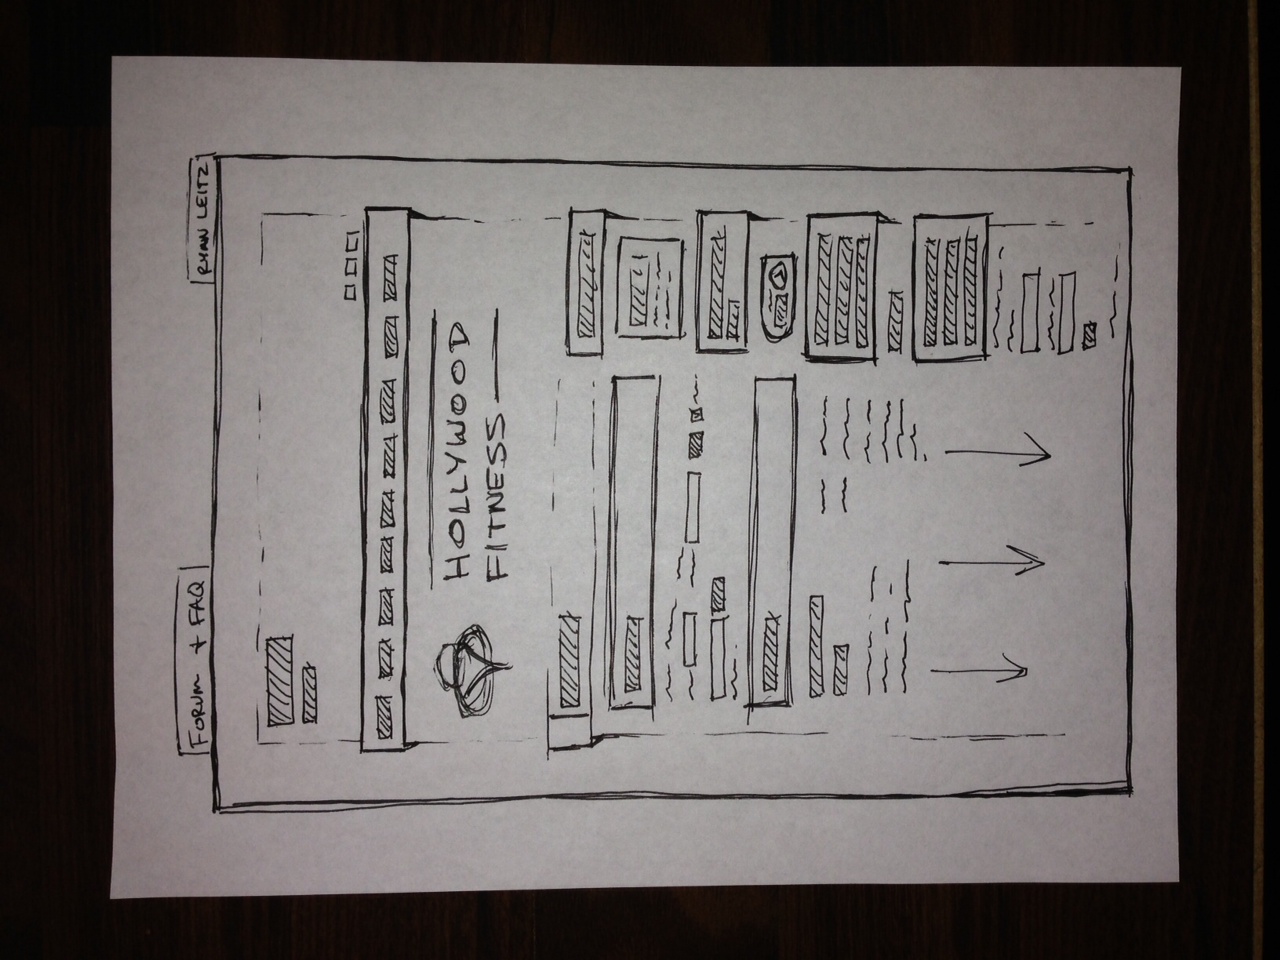 FORUM + FAQ
RYAN LEITZ
HOLLYWOOD
FITNESS